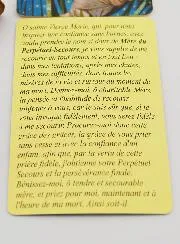 O sainte Vierge Marie, qui, pour nous
inspirer une confiance sans bornes, avez
voulu prendre le nom si doux de Mère du
Perpétuel-Secours, je vous supplie de me
secourir en tout temps et en tout lieu :
dans mes tentations, après mes chutes,
dans mes difficultés, dans toutes les
misères de la vie et surtout au moment de
ma mort. Donnez-moi, ô charitable Mère,
la pensée et l'habitude de recourir
toujours à vous, car je suis sûr que, si je
vous invoque fidèlement, vous serez fidèle
à me secourir. Procurez-moi donc cette
grâce des grâces, la grâce de vous prier
sans cesse et avec la confiance d'un
enfant, afin que, par la vertu de cette
prière fidèle, j'obtienne votre Perpétuel
Secours et la persévérance finale.
Bénissez-moi, ô tendre et secourable
mère, et priez pour moi, maintenant et à
l'heure de ma mort. Ainsi soit-il